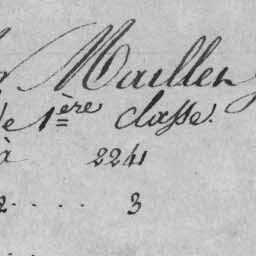 Maillen
de 1ère classe.
à 2241
2. .... 3